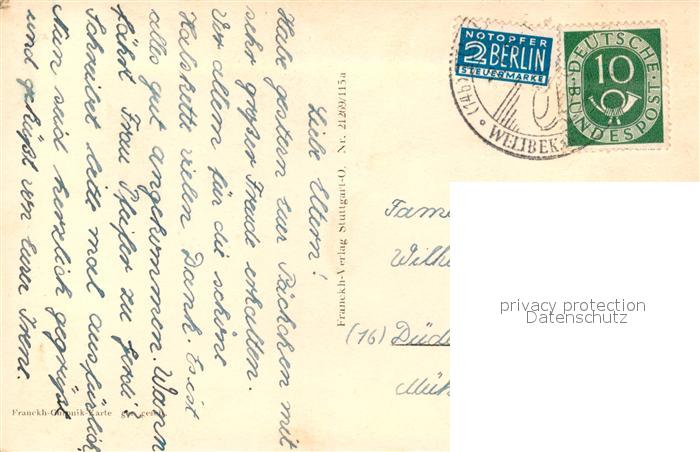 Liebe Eltern!
Habe gestern euer Päckchen mit
sehr großer Freude erhalten.
Vor allem für die schöne
Halskette vielen Dank. Es ist
alles gut angekommen. Wann
fährt Frau Pfeifer zu
Schreibet bitte mal ausfürlich
Nun seid herzlich gegrüßt
und geküßt von eurer Irene.
Franckh-Verlag Stuttgart-O. Nr. 21269/115a
NOTOPFER
2 BERLIN
STEUERMARKE
DEUTSCHE
10
BUNDESPOST
(14b)
WELTBEK
Fam
Wilh
(16) Düd
Müh
privacy protection
Datenschutz